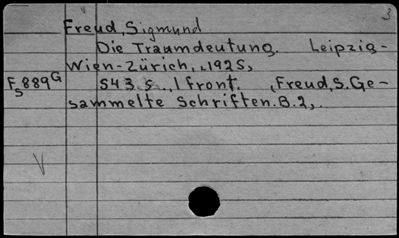 3
Freud, Sigmund
Die Traumdeutung. Leipzig-
Wien-Zürich, 1925,
F 889 G
S
543 S., 1 front. (Freud, S. Ge-
sammelte Schriften. B.2,.
V